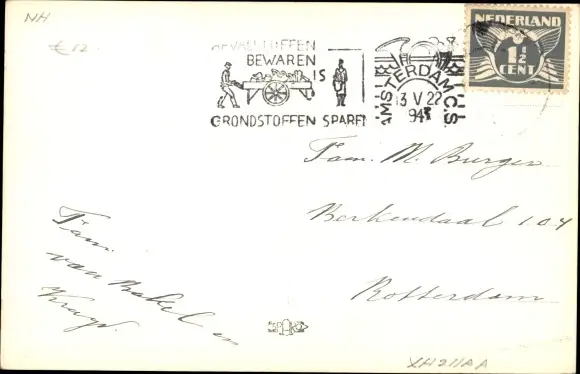 NH
€12
AFVALSTOFFEN
BEWAREN
IS
GRONDSTOFFEN SPAREN
AMSTERDAM C.S.
3 V 22
943
NEDERLAND
1½
CENT
Fam. M. Burger
Berkendaal 104
Rotterdam
Fam.
van Bakel en
XH211AA